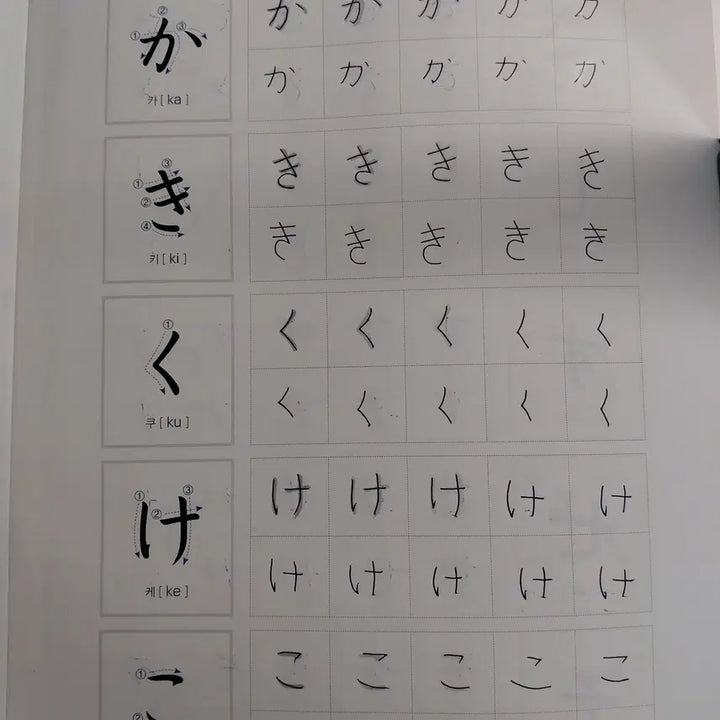 か か か か か
① ② ③
か
か か か か か
카 [ ka ]
き き き き き
① ② ③ ④
き
き き き き き
키 [ ki ]
く く く く く
①
く
く く く く く
쿠 [ ku ]
け け け け け
① ② ③
け
け け け け け
케 [ ke ]
こ こ こ こ こ
① ②